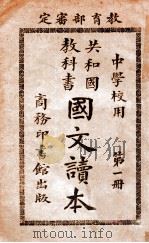 教育部審定
中學校用
共和國
教科書
國文讀本
第一册
商務印書館出版
www.toopoo.com